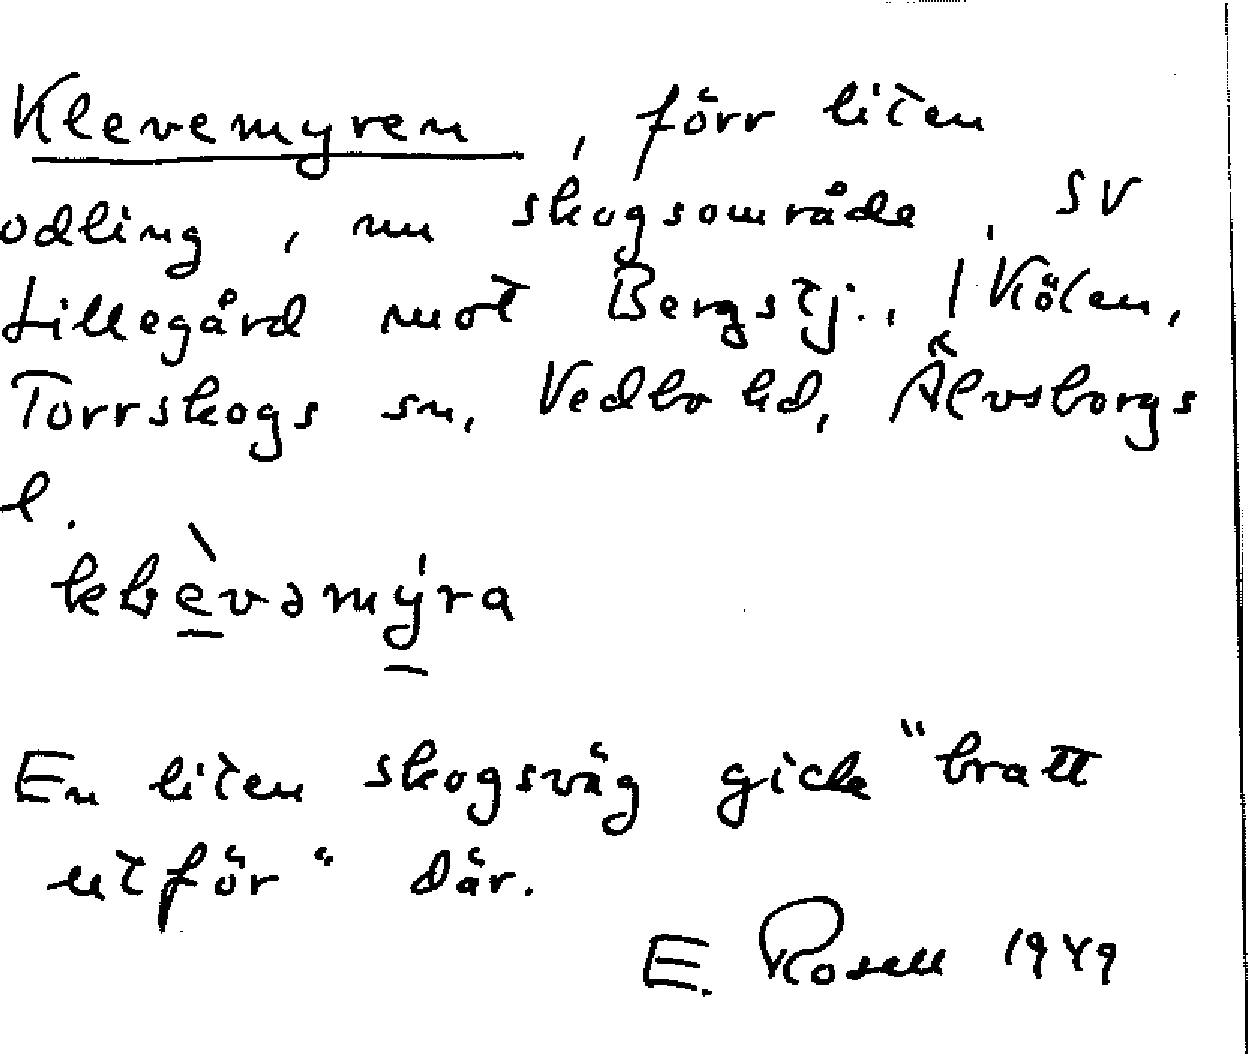 Klevemyren, förr liten
odling, nu skogsområde, SV
Lillegård mot Bergstj., 1 Kölen,
Torrskogs sn, Vedbo hd, Älvsborgs
l.
klèvəmýra
En liten skogsväg gick "bratt
utför" där.
E. Rosell 1949